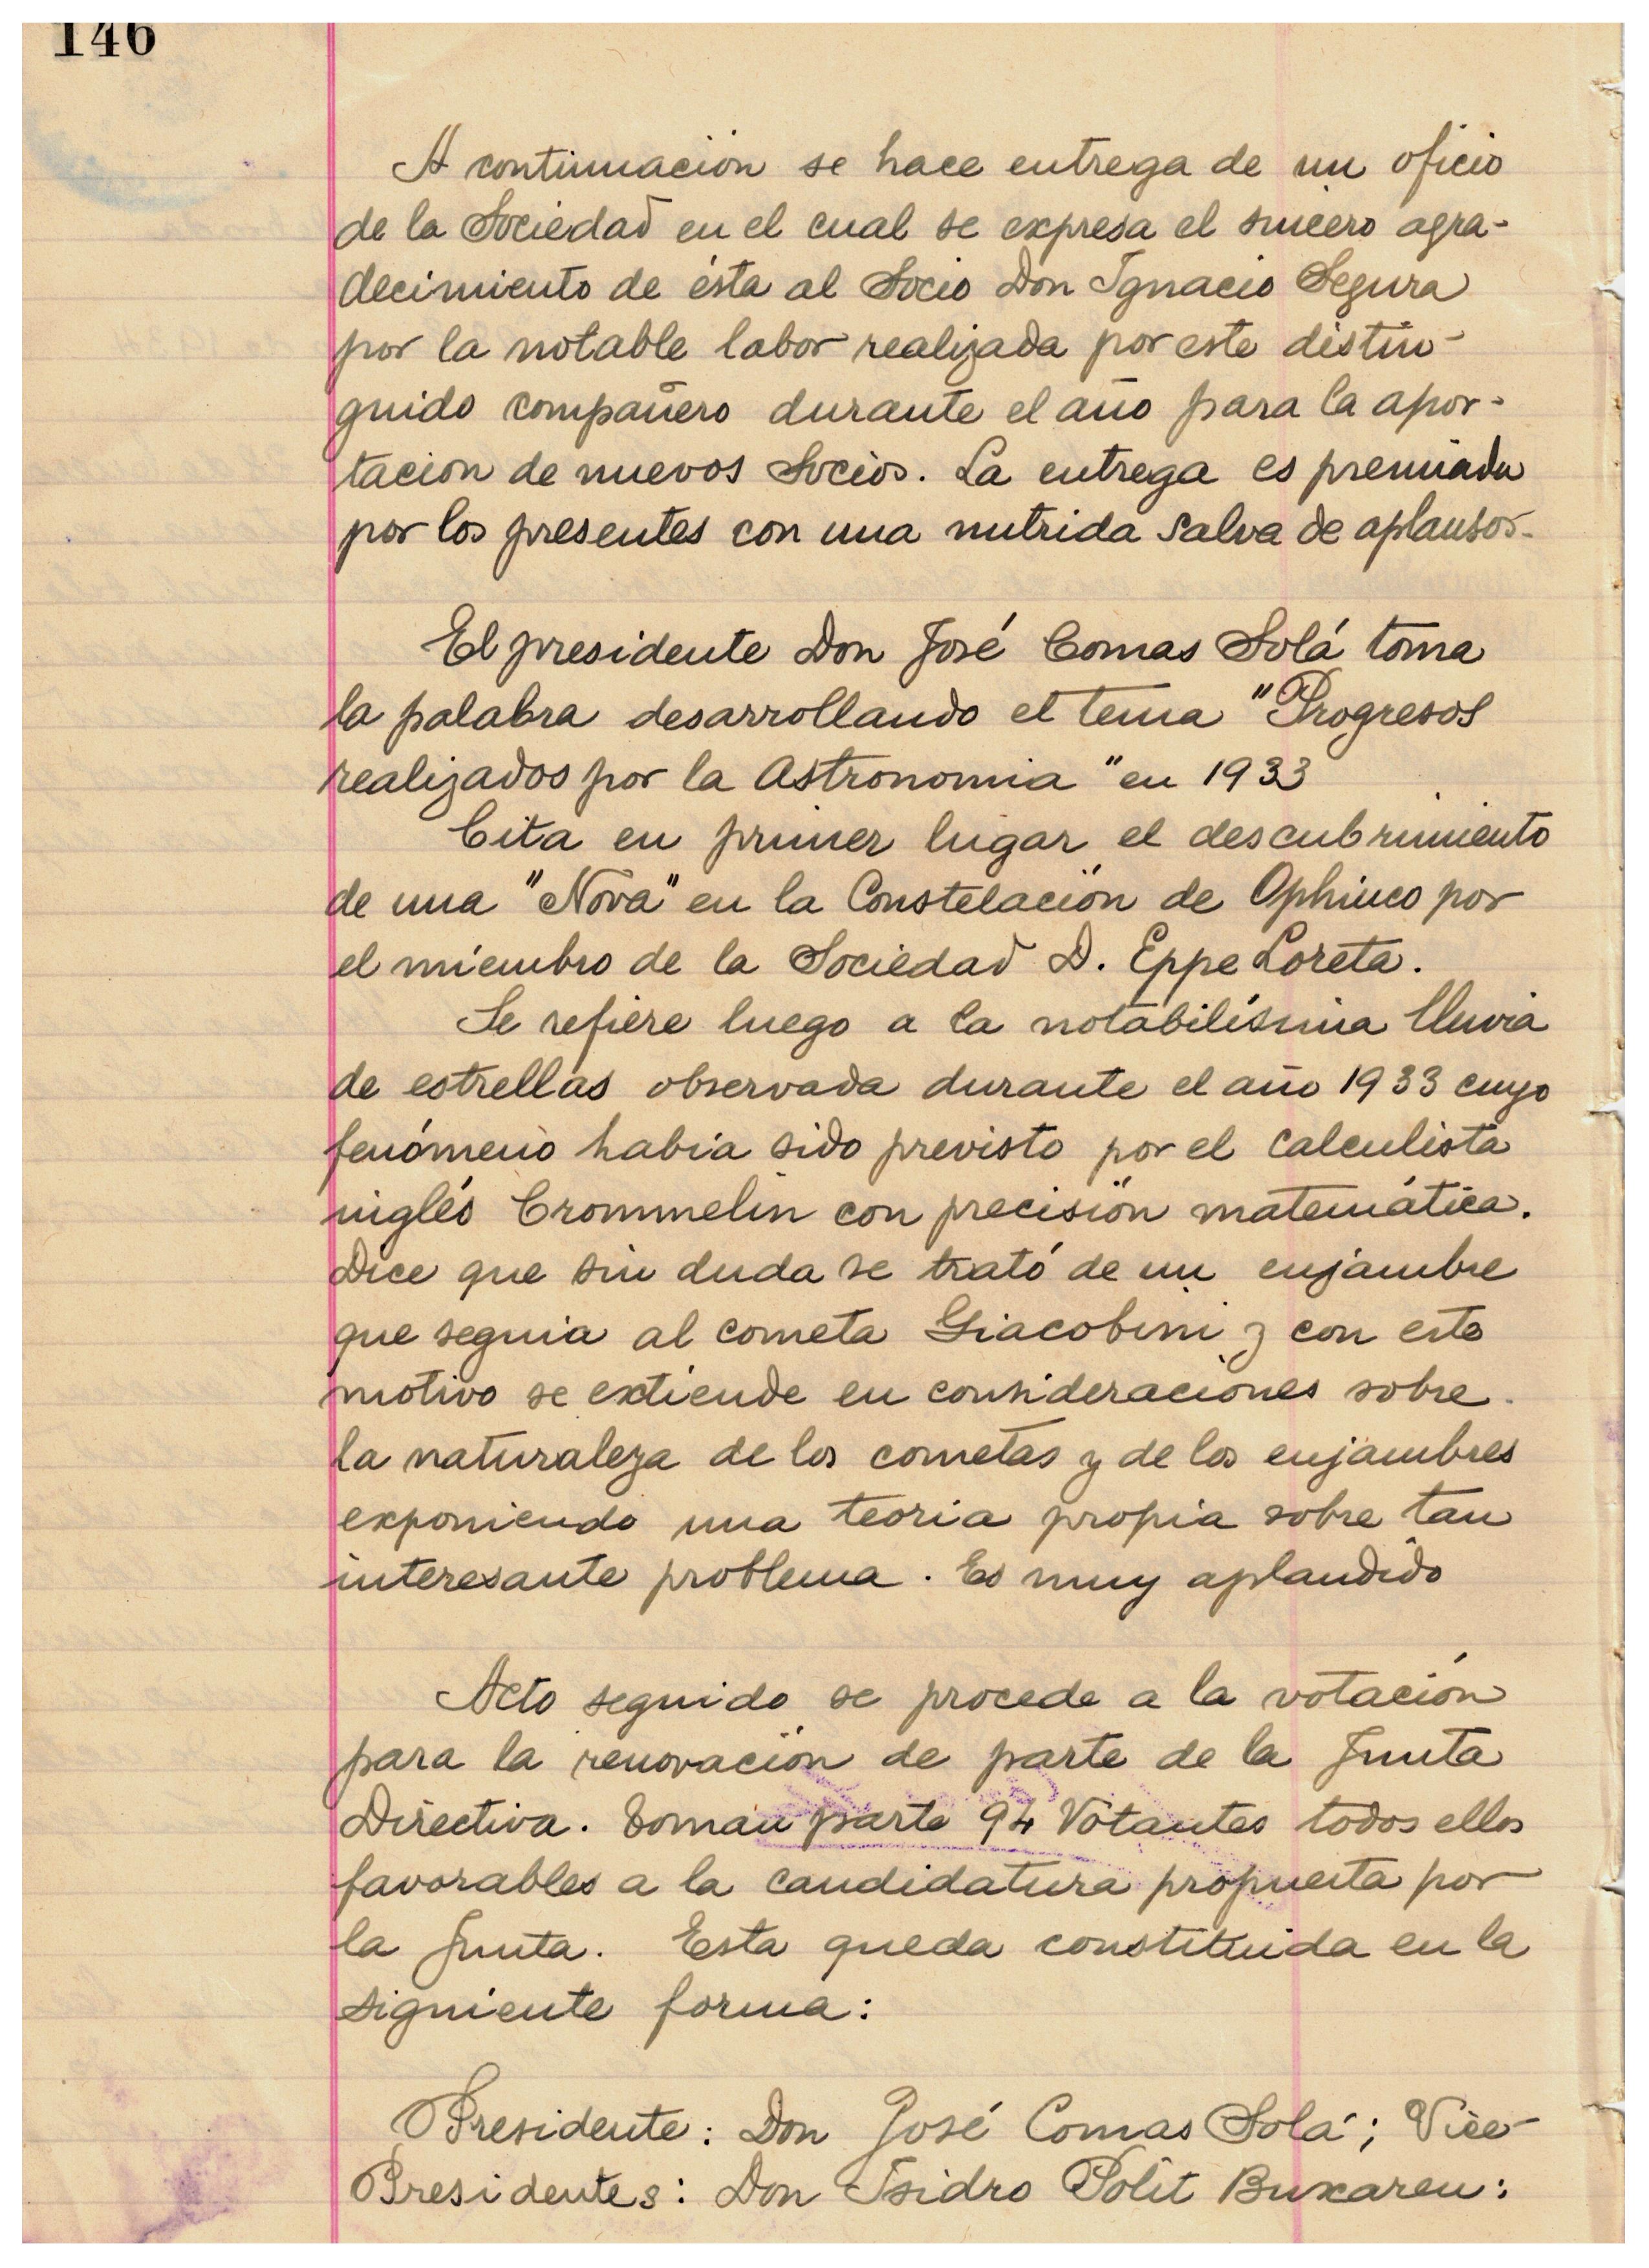 146
A continuación se hace entrega de un oficio
de la Sociedad en el cual se expresa el sincero agra-
decimiento de ésta al Socio Don Ignacio Segura
por la notable labor realizada por este distin-
guido compañero durante el año para la apor-
tación de nuevos Socios. La entrega es premiada
por los presentes con una nutrida salva de aplausos.
El presidente Don José Comas Solá toma
la palabra desarrollando el tema "Progresos
realizados por la Astronomia" en 1933
Cita en primer lugar el descubrimiento
de una "Nova" en la Constelación de Ophiuco por
el miembro de la Sociedad D. Eppe Loreta.
Se refiere luego a la notabilísima lluvia
de estrellas observada durante el año 1933 cuyo
fenómeno habia sido previsto por el calculista
inglés Crommelin con precisión matemática.
Dice que sin duda se trató de un enjambre
que seguia al cometa Giacobini y con este
motivo se extiende en consideraciones sobre
la naturaleza de los cometas y de los enjambres
exponiendo una teoria propia sobre tan
interesante problema. Es muy aplaudido
Acto seguido se procede a la votación
para la renovación de parte de la Junta
Directiva. Toman parte 94 Votantes todos ellos
favorables a la candidatura propuesta por
la Junta. Esta queda constituida en la
siguiente forma:
Presidente: Don José Comas Solá; Vice-
Presidentes: Don Isidro Pólit Buxareu: